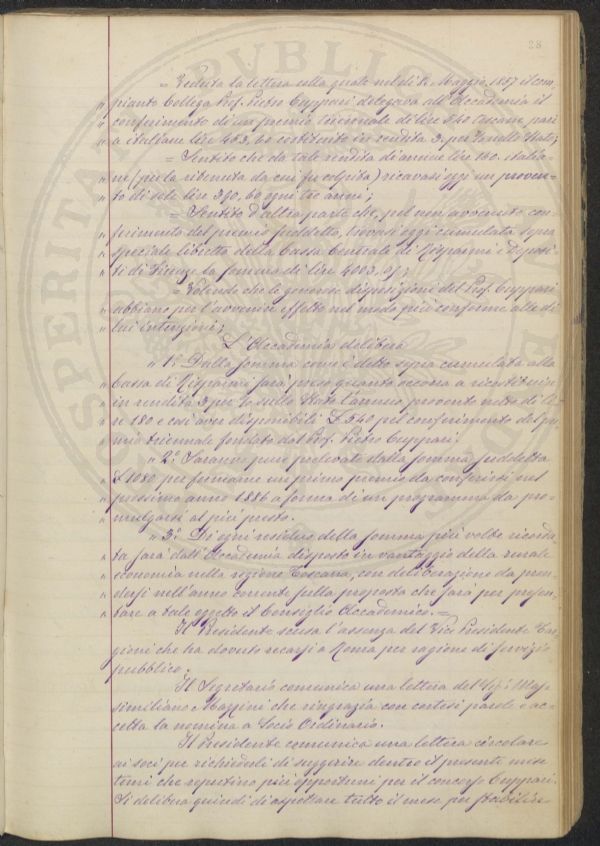 28
= Veduta la lettera colla quale nel dì 12 Maggio 1857 il com
" pianto Collega Prof. Pietro Cuppari delegava all'Accademia il
" conferimento di un premio triennale di lire 540 toscane, pari
" a italiane lire 453,60 costituito in rendita 3 per % sullo Stato;
= Sentito che da tale rendita di annue lire 150 italia
" ne (per la ritenuta da cui fu colpita) ricavasi oggi un proven
" to di sole lire 390,60 ogni tre anni;
= Sentito d'altra parte che, pel non avvenuto con
" ferimento del premio suddetto, trovasi oggi cumulata sopra
" speciale libretto della Cassa Centrale di Risparmi e Deposi
" ti di Firenze la somma di lire 4003,
Volendo che le generose disposizioni del Prof. Cuppari
" abbiano per l'avvenire effetto nel modo più conforme alle di
" lui intenzioni;
L'Accademia delibera
" 1.° Dalla somma come è detto sopra cumulata alla
" Cassa di Risparmi sarà preso quanto occorra a ricostituire
" in rendita 3 per % sullo Stato l'annuo provento netto di li
" re 180 e così aver disponibili £ 540 pel conferimento del pre
" mio triennale fondato dal Prof. Pietro Cuppari.
" 2.° Saranno pure prelevate dalla somma suddetta
" £ 1080 per formarne un primo premio da conferirsi nel
" prossimo anno 1886 a forma di un programma da pro
" mulgarsi al più presto.
" 3.° Di ogni residuo della somma più volte ricorda
" ta sarà dall'Accademia disposto in vantaggio della rurale
" economia nella regione Toscana, con deliberazione da pren
" dersi nell'anno corrente sulla proposta che sarà per presen
" tare a tale oggetto il Consiglio Accademico. =
Il Presidente scusa l'assenza del Vice Presidente Ca
gioni che ha dovuto recarsi a Roma per ragione di servizio
pubblico.
Il Segretario comunica una lettera del Sig. Mas
similiano Mazzini che ringrazia con cortesi parole e ac
cetta la nomina a Socio Ordinario.
Il Presidente comunica una lettera circolare
ai soci per richiederli di suggerire dentro il presente mese
temi che reputino più opportuni per il concorso Cuppari.
Si delibera quindi di aspettare tutto il mese per stabilire